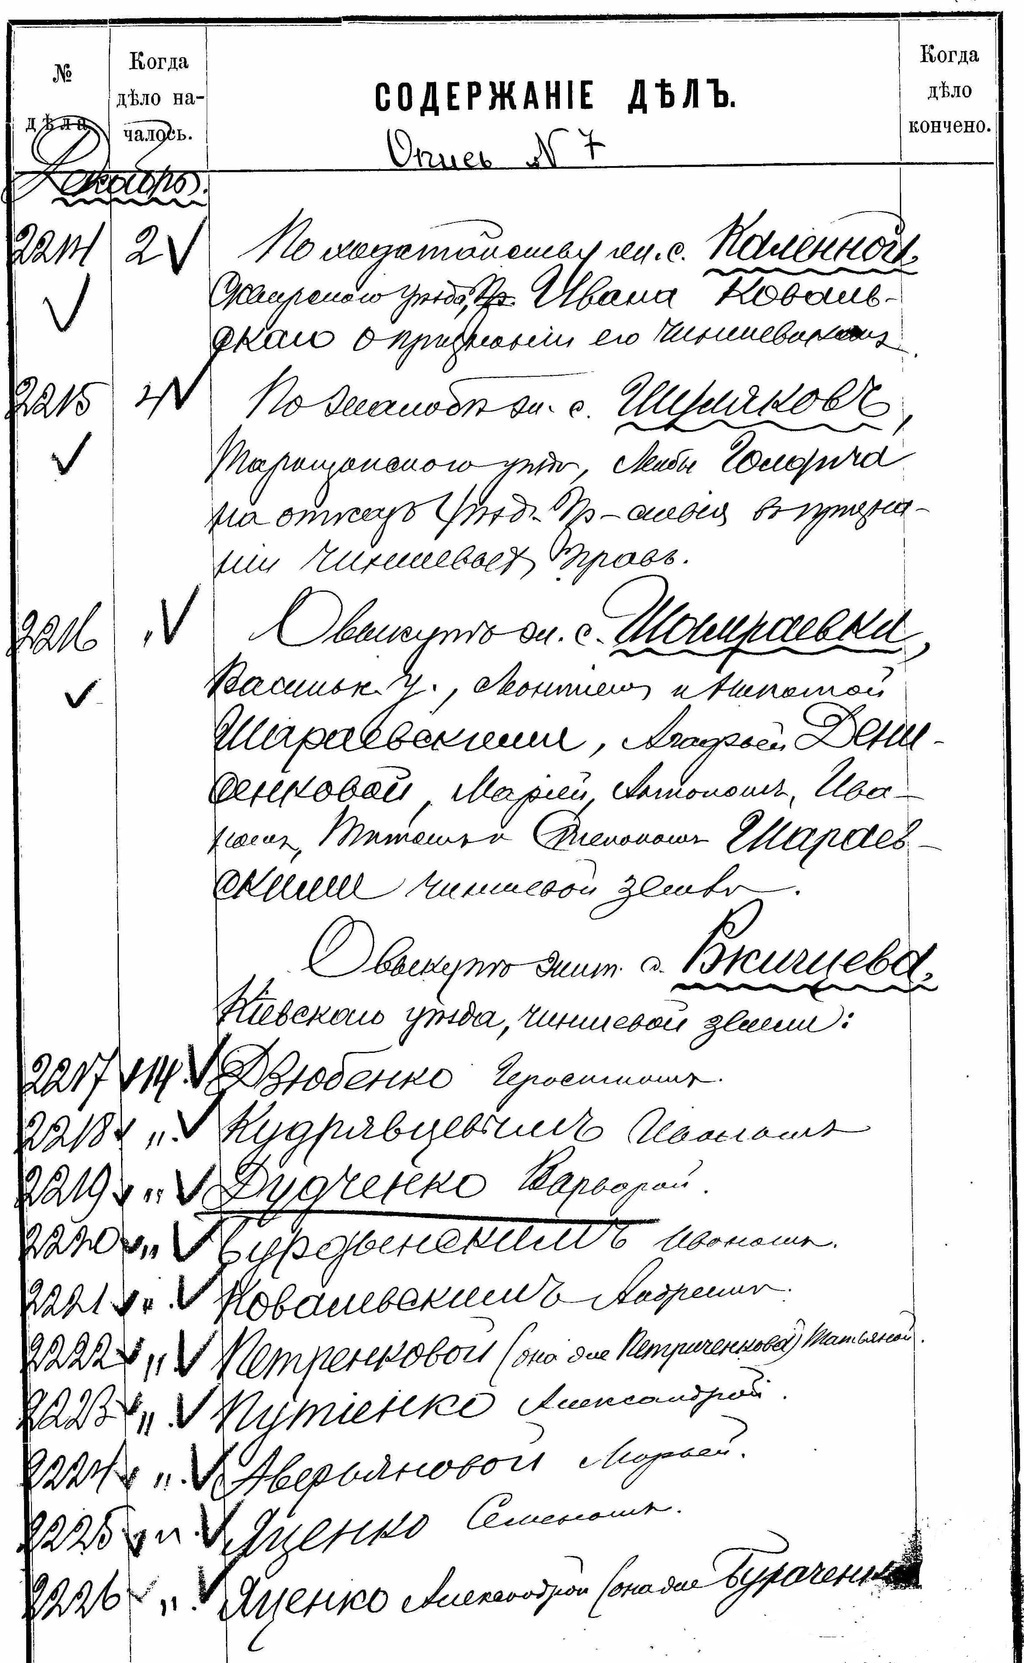 № дѣла
Когда дѣло на-чалось.
СОДЕРЖАНІЕ ДѢЛЪ.
Когда дѣло кончено.
Опись N 7
Декабрь.
2214 2 По ходатайству жит. с. Каленной,
Сквирскаго уѣзда, Ивана Коваль-
скаго о признаніи его чиншевикомъ.
2215 4 По жалобѣ жит. с. Шуляковъ,
Таращанскаго уѣзда,
на отказъ Уѣзд. Пр-ствія въ призна-
ніи чиншевыхъ правъ.
2216 " О выкупѣ жит. с. Шамраевки,
Васильк. у., и
Шараевскими, Агафьей Дени-
сенковой, Маріей, Антономъ, Ива-
номъ, Титомъ и Степаномъ Шараев-
скими чиншевой земли.
О выкупѣ жит. с.
Кіевскаго уѣзда, чиншевой земли:
2217 14. Дзюбенко Герасимомъ.
2218 ". Кудрявцевымъ Иваномъ
2219 " Дудченко Варварой.
2220 " Бурдынскимъ Иваномъ.
2221 ". Ковалевскимъ Андреемъ.
2222 " Петренковой (она же Петриченкова) Татьяной.
2223 ". Путіенко Александрой.
2224 ". Аверьяновой Марьей.
2225 " Яценко Семеномъ.
2226 ". Яценко Александрой (она же Бураченк